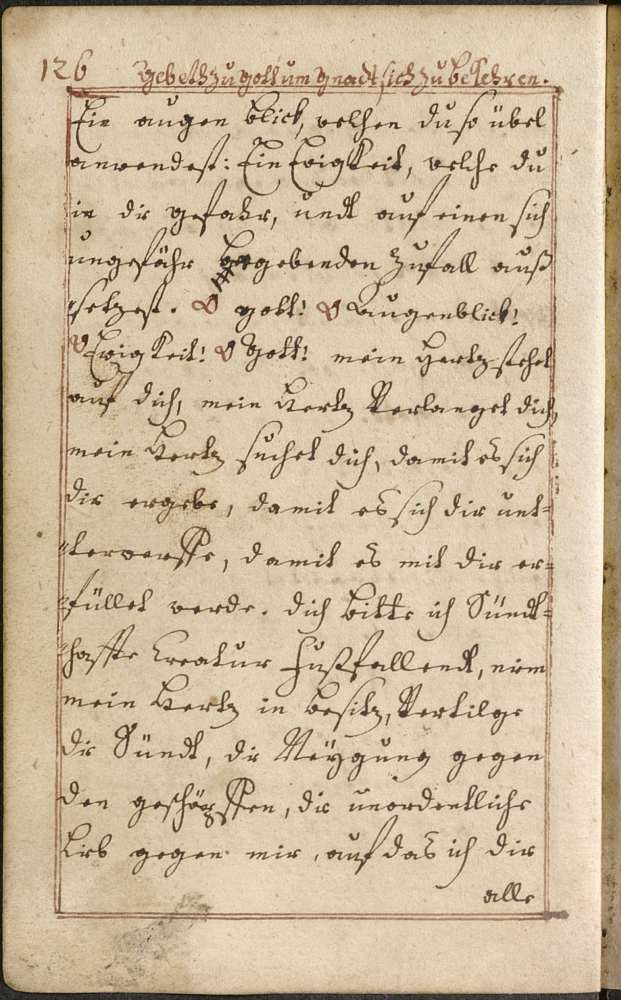 126 Gebeth zu gott um gnadt sich zu bekehren.
Ein augen blick, welchen du so übel
anwendest: Ein Ewigkeit, welche du
in die gefahr, undt auf einen sich
ungefähr begebenden Zufall auß
setzest. O gott! O Augenblick!
O Ewigkeit! O Gott! mein Hertz stehet
auf dich, mein Hertz Verlanget dich,
mein Hertz suchet dich, damit es sich
dir ergebe, damit es sich dir unt=
terwerffe, damit es mit dir er=
füllet werde. dich bitte ich Sündt=
haffte Creatur Fußfallendt, nim
mein Hertz in besitz, Vertilge
die Sündt, die Neÿgung gegen
den geschöpffen, die unordentliche
Lieb gegen mir, auf das ich dir
alle